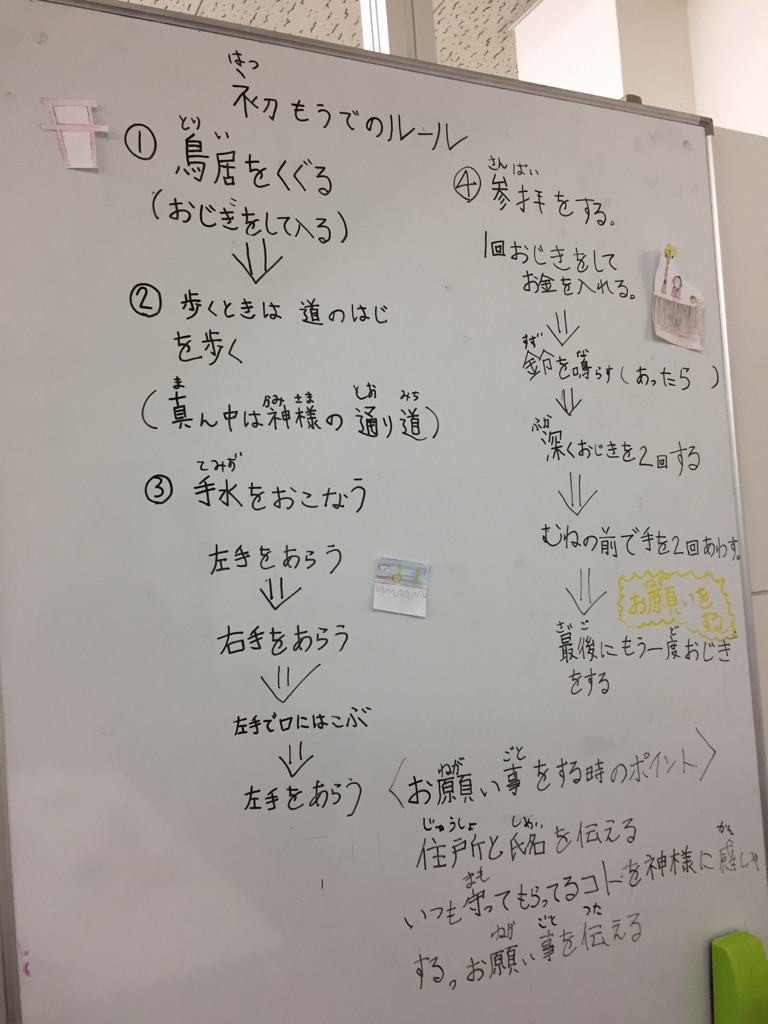 初もうでのルール
はつ
① 鳥居をくぐる
とり い
(おじぎをして入る)
② 歩くときは 道のはじ
を歩く
(真ん中は神様の 通り道)
ま かみ さま とお みち
③ 手水をおこなう
てみず
左手をあらう
右手をあらう
左手で口にはこぶ
左手をあらう
④ 参拝をする。
さん ぱい
1回おじきをして
お金を入れる。
鈴を鳴らす(あったら )
すず な
深くおじきを2回する
ふか
むねの前で手を2回あわす。
お願いを
ねが
する
最後にもう一度おじき
さい ご ど
をする
〈お願い事をする時のポイント〉
ねが ごと
住所と氏名を伝える
じゅうしょ しめい
いつも守ってもらってるコトを神様に感しゃ
まも かん
する。お願い事を伝える
ねが ごと つた